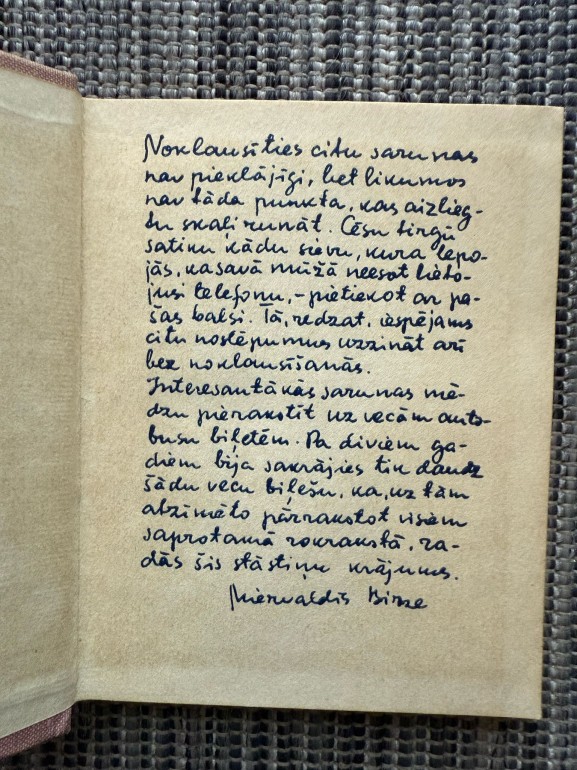 Noklausīties citu sarunas
nav pieklājīgi, bet likumos
nav tāda punkta, kas aizlieg-
tu skaļi runāt. Cēsu tirgū
satiku kādu sievu, kura lepo-
jās, ka savā mūžā neesot lieto-
jusi telefonu, – pietiekot ar pa-
šas balsi. Tā, redzat, iespējams
citu noslēpumus uzzināt arī
bez noklausīšanās.
Interesantākās sarunas mē-
dzu pierakstīt uz vecām auto-
busu biļetēm. Pa diviem ga-
diem bija sakrājies tik daudz
šādu vecu biļešu, ka, uz tām
atzīmēto pārrakstot visiem
saprotamā rokrakstā, ra-
dās šis stāstiņu krājums.
Miervaldis Birze